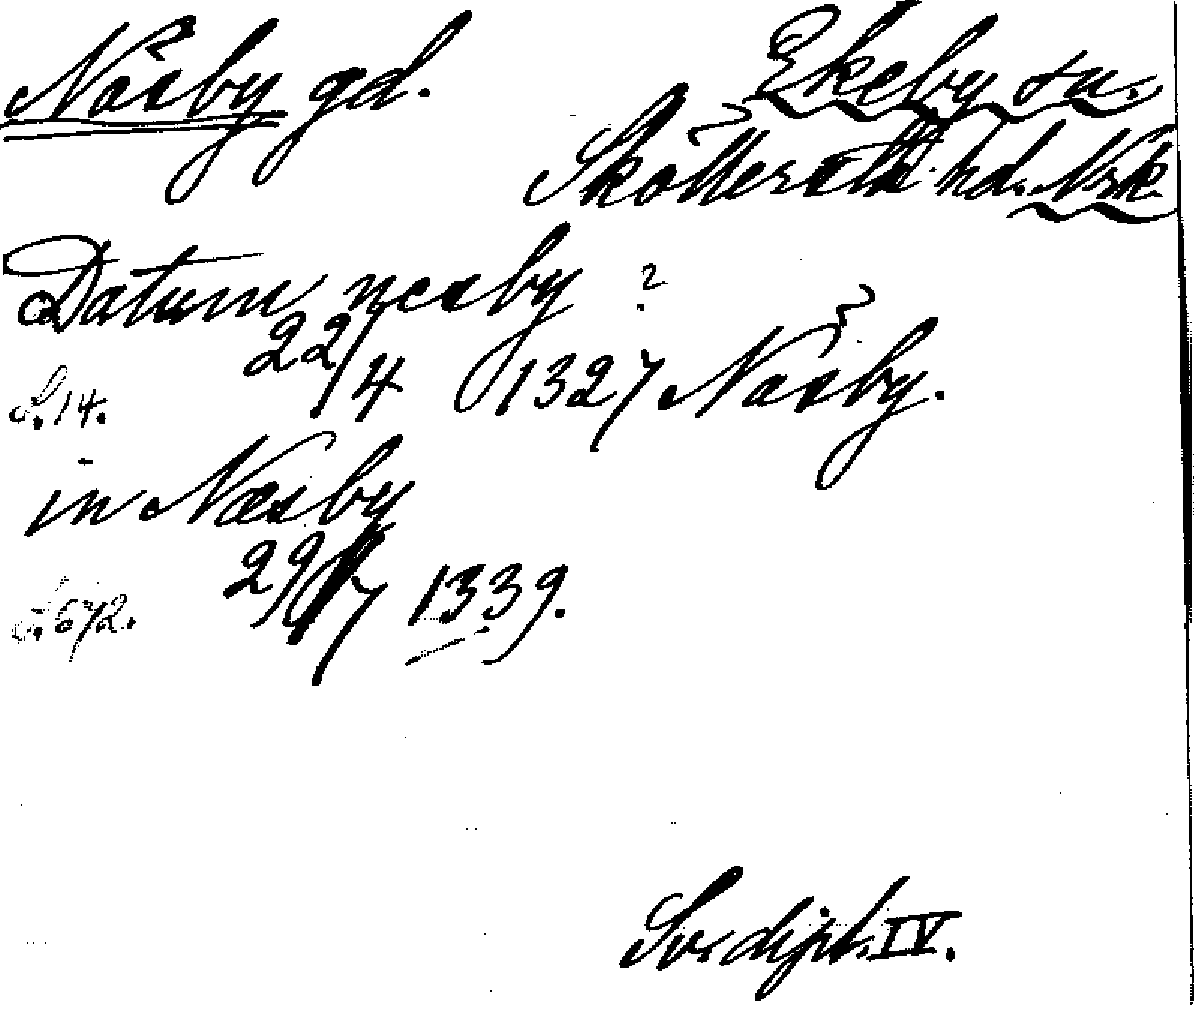 Näsby gd. Ekeby sn.
Sköllersta hd. Nrk
Datum nesby ?
22/4 1327 Näsby.
S. 14.
in Næsby
29/7 1339.
S. 572.
Sv. dipl. IV.